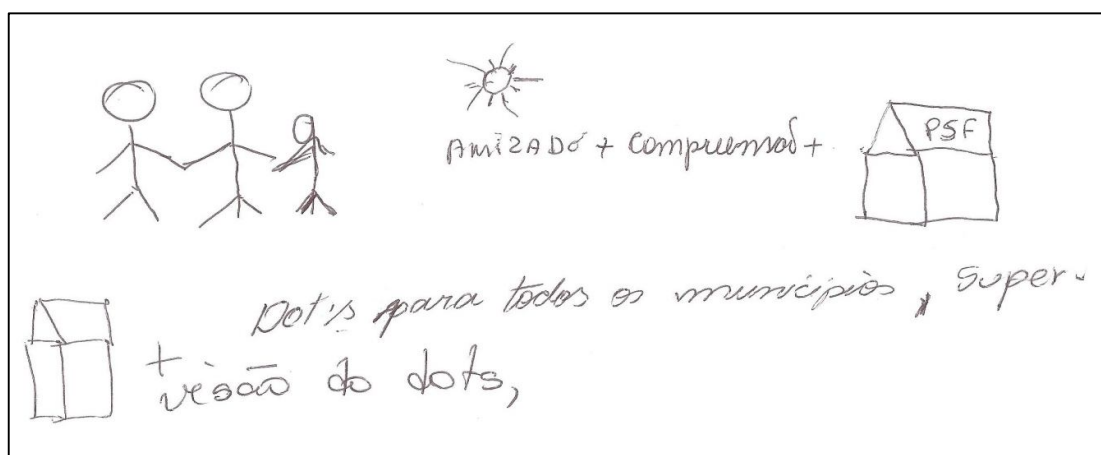 AMIZADE + Compreensão +
PSF
Dot's para todos os municípios, super-
+ visão do dots,